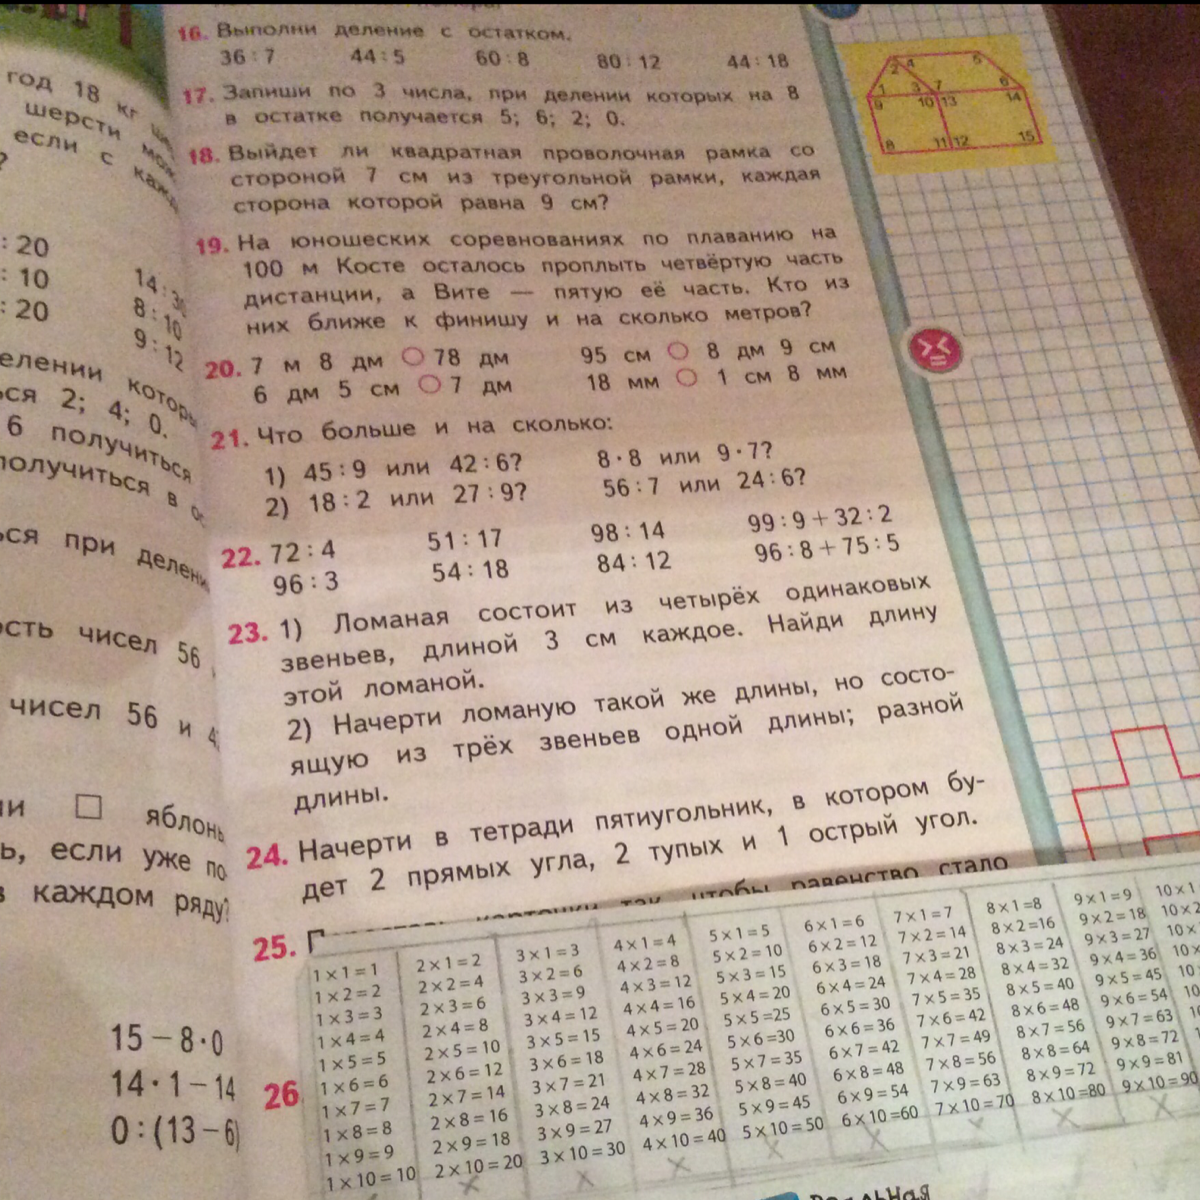 год 18 кг
шерсти
если с
: 20
: 10
: 20
14 : 30
8 : 10
9 : 12
ся 2; 4; 0.
6 получиться
получиться в
ься при делени
ость чисел 56
чисел 56 и 4
ии □ яблонь
ь, если уже по
в каждом ряду?
15 − 8 · 0
14 · 1 − 14
0 : (13 − 6)
16. Выполни деление с остатком.
36 : 7 44 : 5 60 : 8 80 : 12 44 : 18
17. Запиши по 3 числа, при делении которых на 8
в остатке получается 5; 6; 2; 0.
18. Выйдет ли квадратная проволочная рамка со
стороной 7 см из треугольной рамки, каждая
сторона которой равна 9 см?
19. На юношеских соревнованиях по плаванию на
100 м Косте осталось проплыть четвёртую часть
дистанции, а Вите — пятую её часть. Кто из
них ближе к финишу и на сколько метров?
20. 7 м 8 дм ○ 78 дм 95 см ○ 8 дм 9 см
6 дм 5 см ○ 7 дм 18 мм ○ 1 см 8 мм
21. Что больше и на сколько:
1) 45 : 9 или 42 : 6? 8 · 8 или 9 · 7?
2) 18 : 2 или 27 : 9? 56 : 7 или 24 : 6?
22. 72 : 4 51 : 17 98 : 14 99 : 9 + 32 : 2
96 : 3 54 : 18 84 : 12 96 : 8 + 75 : 5
23. 1) Ломаная состоит из четырёх одинаковых
звеньев, длиной 3 см каждое. Найди длину
этой ломаной.
2) Начерти ломаную такой же длины, но состо-
ящую из трёх звеньев одной длины; разной
длины.
24. Начерти в тетради пятиугольник, в котором бу-
дет 2 прямых угла, 2 тупых и 1 острый угол.
25. чтобы равенство стало
26
2 4 5
1 3 7 6
9 10 13 14
8 11 12 15
> < =
1 × 1 = 1 2 × 1 = 2 3 × 1 = 3 4 × 1 = 4 5 × 1 = 5 6 × 1 = 6 7 × 1 = 7 8 × 1 = 8 9 × 1 = 9 10 × 1
1 × 2 = 2 2 × 2 = 4 3 × 2 = 6 4 × 2 = 8 5 × 2 = 10 6 × 2 = 12 7 × 2 = 14 8 × 2 = 16 9 × 2 = 18 10 × 2
1 × 3 = 3 2 × 3 = 6 3 × 3 = 9 4 × 3 = 12 5 × 3 = 15 6 × 3 = 18 7 × 3 = 21 8 × 3 = 24 9 × 3 = 27 10 ×
1 × 4 = 4 2 × 4 = 8 3 × 4 = 12 4 × 4 = 16 5 × 4 = 20 6 × 4 = 24 7 × 4 = 28 8 × 4 = 32 9 × 4 = 36 10 ×
1 × 5 = 5 2 × 5 = 10 3 × 5 = 15 4 × 5 = 20 5 × 5 = 25 6 × 5 = 30 7 × 5 = 35 8 × 5 = 40 9 × 5 = 45 10
1 × 6 = 6 2 × 6 = 12 3 × 6 = 18 4 × 6 = 24 5 × 6 = 30 6 × 6 = 36 7 × 6 = 42 8 × 6 = 48 9 × 6 = 54 10
1 × 7 = 7 2 × 7 = 14 3 × 7 = 21 4 × 7 = 28 5 × 7 = 35 6 × 7 = 42 7 × 7 = 49 8 × 7 = 56 9 × 7 = 63
1 × 8 = 8 2 × 8 = 16 3 × 8 = 24 4 × 8 = 32 5 × 8 = 40 6 × 8 = 48 7 × 8 = 56 8 × 8 = 64 9 × 8 = 72
1 × 9 = 9 2 × 9 = 18 3 × 9 = 27 4 × 9 = 36 5 × 9 = 45 6 × 9 = 54 7 × 9 = 63 8 × 9 = 72 9 × 9 = 81
1 × 10 = 10 2 × 10 = 20 3 × 10 = 30 4 × 10 = 40 5 × 10 = 50 6 × 10 = 60 7 × 10 = 70 8 × 10 = 80 9 × 10 = 90